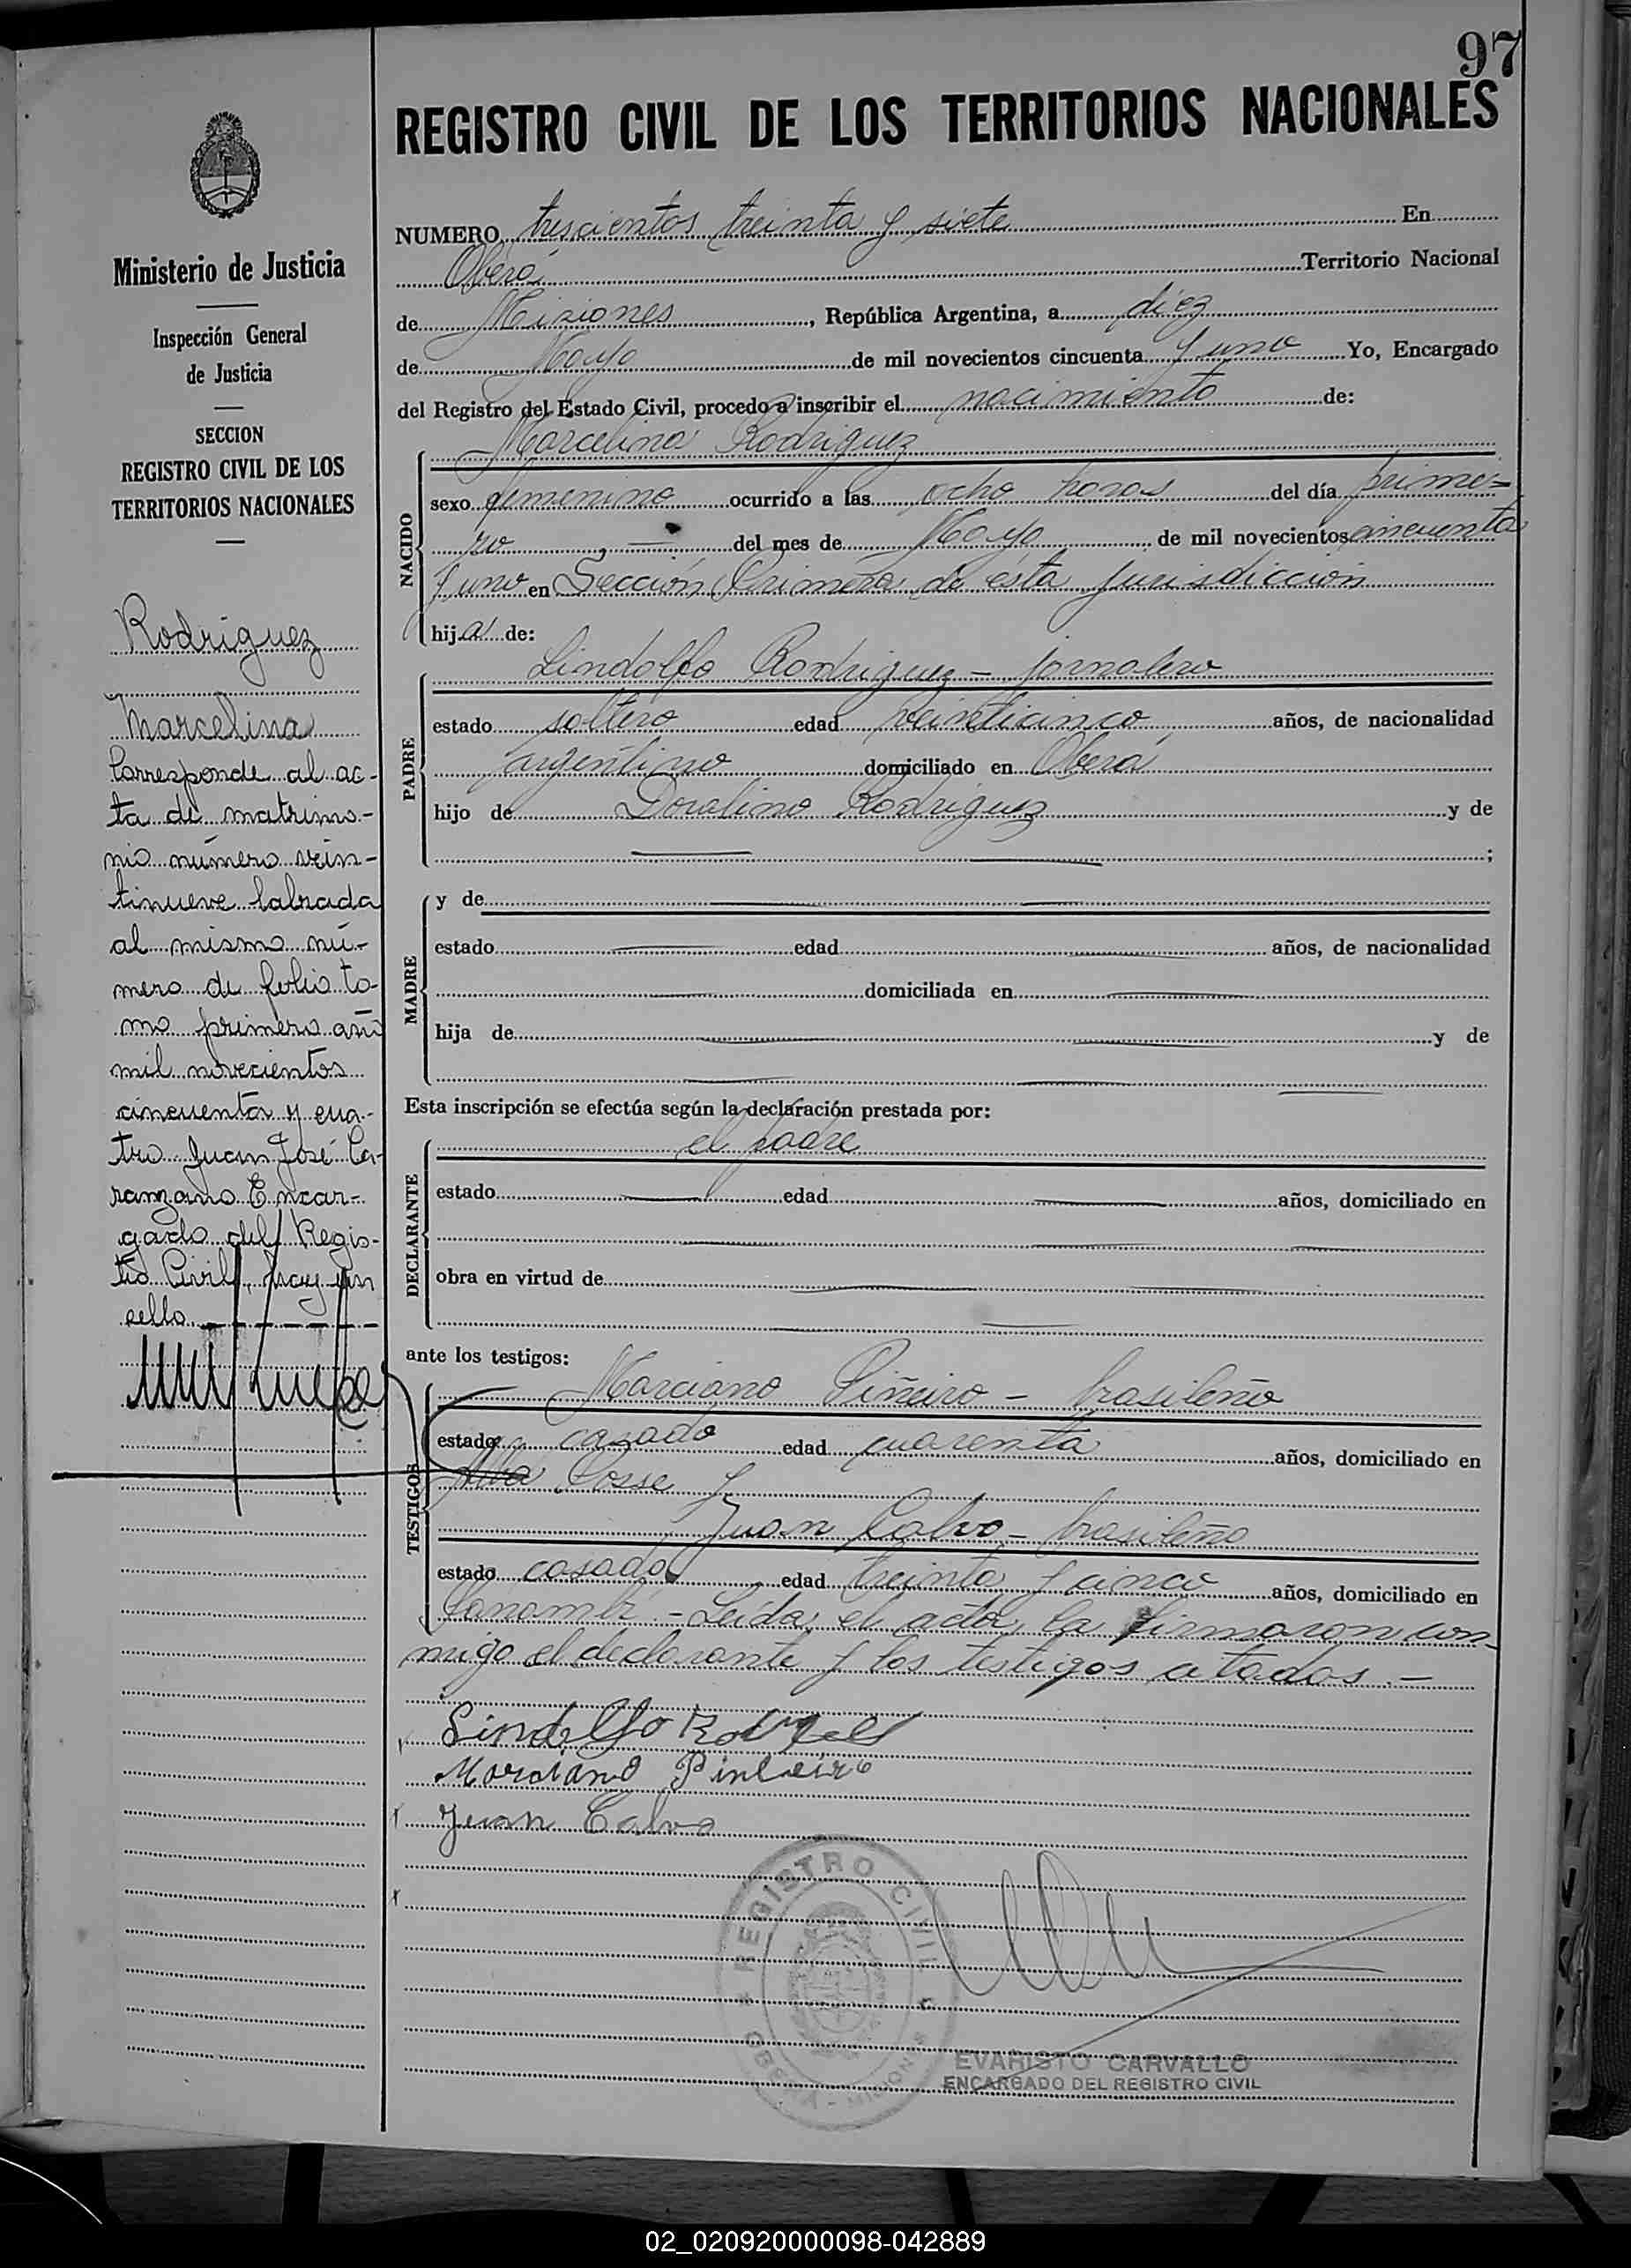 97
REGISTRO CIVIL DE LOS TERRITORIOS NACIONALES
Ministerio de Justicia
Inspección General
de Justicia
SECCION
REGISTRO CIVIL DE LOS
TERRITORIOS NACIONALES
Rodriguez
Marcelina
Corresponde al ac-
ta de matrimo-
nio número vein-
tinueve labrada
al mismo nú-
mero de folio to-
mo primero año
mil novecientos
cincuenta y cua-
tro Juan José Ca-
ranzano Encar-
gado del Regis-
tro Civil, hay un
sello
NUMERO trescientos treinta y siete En
Oberá Territorio Nacional
de Misiones, República Argentina, a diez
de Mayo de mil novecientos cincuenta y uno Yo, Encargado
del Registro del Estado Civil, procedo a inscribir el nacimiento de:
Marcelina Rodriguez
NACIDO
sexo femenino ocurrido a las ocho horas del día prime-
ro, — del mes de Mayo, de mil novecientos cincuenta
y uno en Sección Primera de ésta jurisdicción
hija de:
Lindolfo Rodriguez - jornalero
PADRE
estado soltero edad veinticinco años, de nacionalidad
argentino domiciliado en Oberá
hijo de Doralino Rodriguez y de
;
MADRE
y de
estado edad años, de nacionalidad
domiciliada en
hija de y de
Esta inscripción se efectúa según la declaración prestada por:
el padre
DECLARANTE
estado edad años, domiciliado en
obra en virtud de
ante los testigos:
TESTIGOS
Marciano Piñeiro - brasileño
estado casado edad cuarenta años, domiciliado en
Alba Posse y
Juan Calvo - brasileño
estado casado edad treinta y cinco años, domiciliado en
Panambí - Leída el acta, la firmaron con-
migo el declarante y los testigos citados.-
Lindolfo
Marciano Pinheiro
Juan Calvo
REGISTRO CIVIL
OBERA - MISIONES
EVARISTO CARVALLO
ENCARGADO DEL REGISTRO CIVIL
02_020920000098-042889